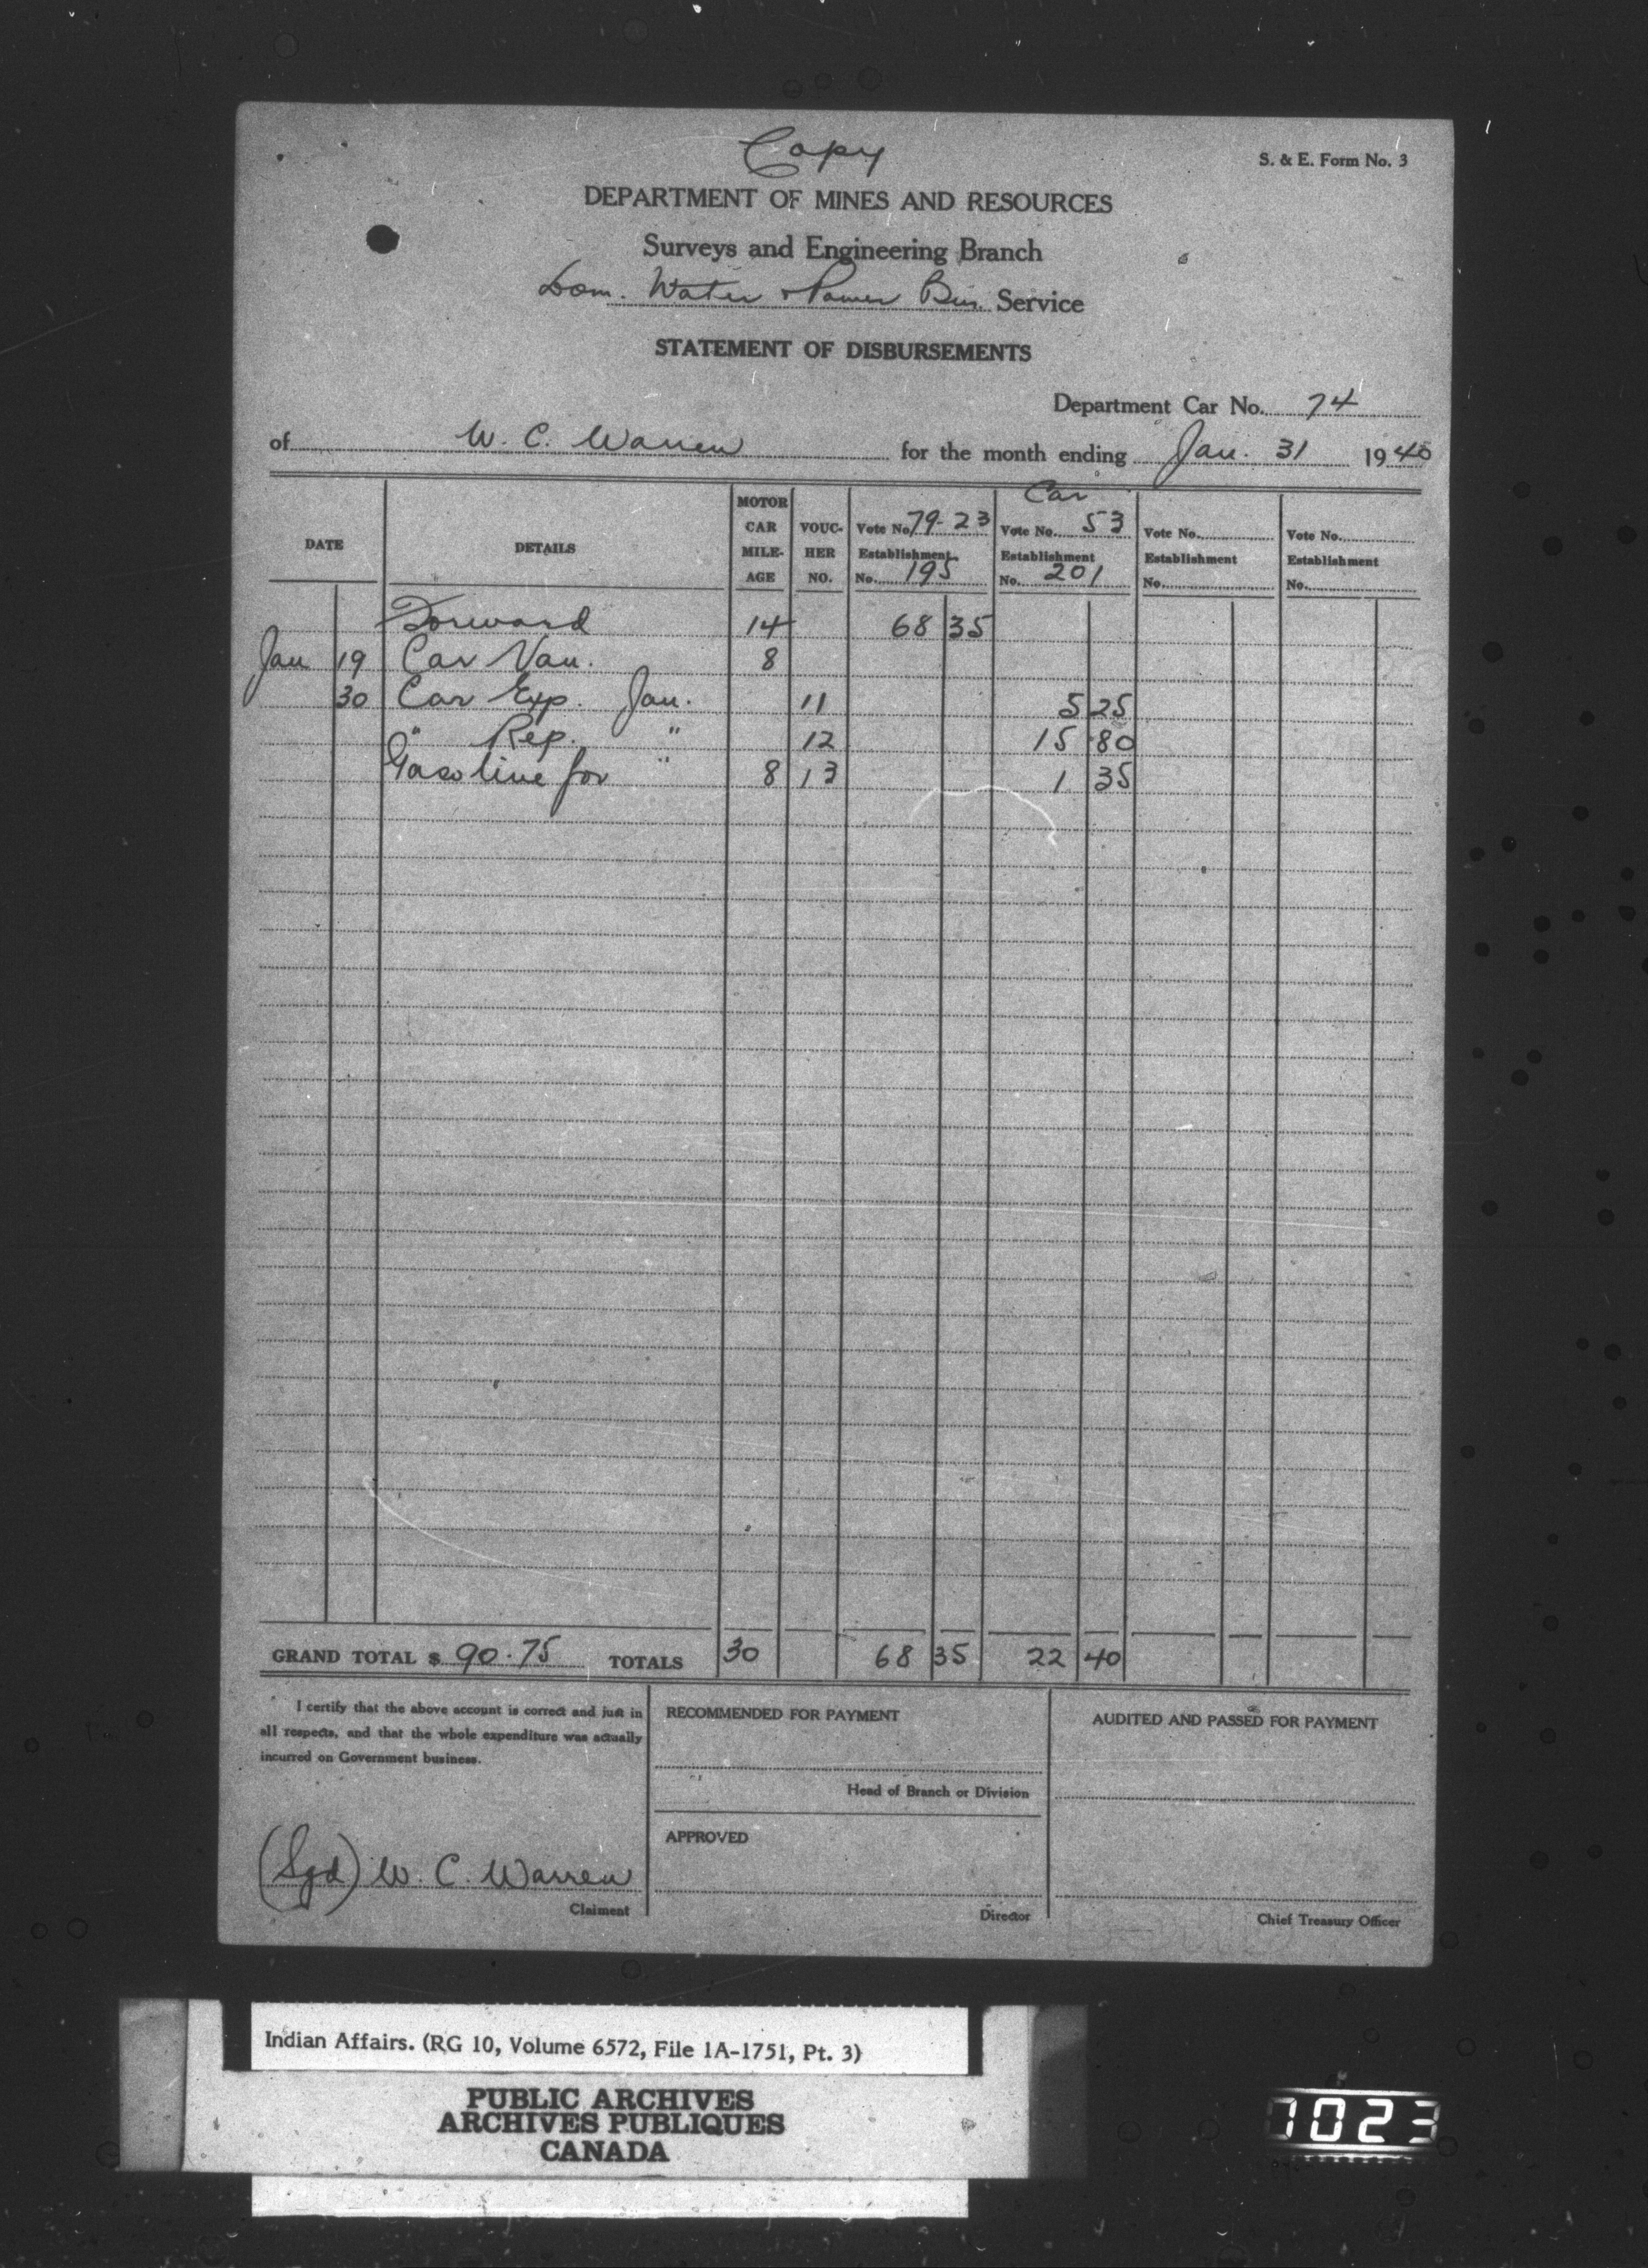 Copy
S. & E. Form No. 3
DEPARTMENT OF MINES AND RESOURCES
Surveys and Engineering Branch
Dom. Water & Power Bur. Service
STATEMENT OF DISBURSEMENTS
Department Car No. 74
of W. C. Warren for the month ending Jan. 31 1940
DATE DETAILS MOTOR CAR MILE- AGE VOUC- HER NO. Vote No. 79-23 Establishment No. 195 Car Vote No. 53 Establishment No. 201 Vote No. Establishment No. Vote No. Establishment No.
Forward 14 68 35
Jan 19 Car Van. 8
30 Car Exp. Jan. 11 5 25
" Rep. " 12 15 80
Gasoline for " 8 13 1 35
GRAND TOTAL $ 90.75 TOTALS 30 68 35 22 40
I certify that the above account is correct and just in
all respects, and that the whole expenditure was actually
incurred on Government business.
(Sgd) W. C. Warren
Claiment
RECOMMENDED FOR PAYMENT
Head of Branch or Division
APPROVED
Director
AUDITED AND PASSED FOR PAYMENT
Chief Treasury Officer
Indian Affairs. (RG 10, Volume 6572, File 1A-1751, Pt. 3)
PUBLIC ARCHIVES
ARCHIVES PUBLIQUES
CANADA
1023